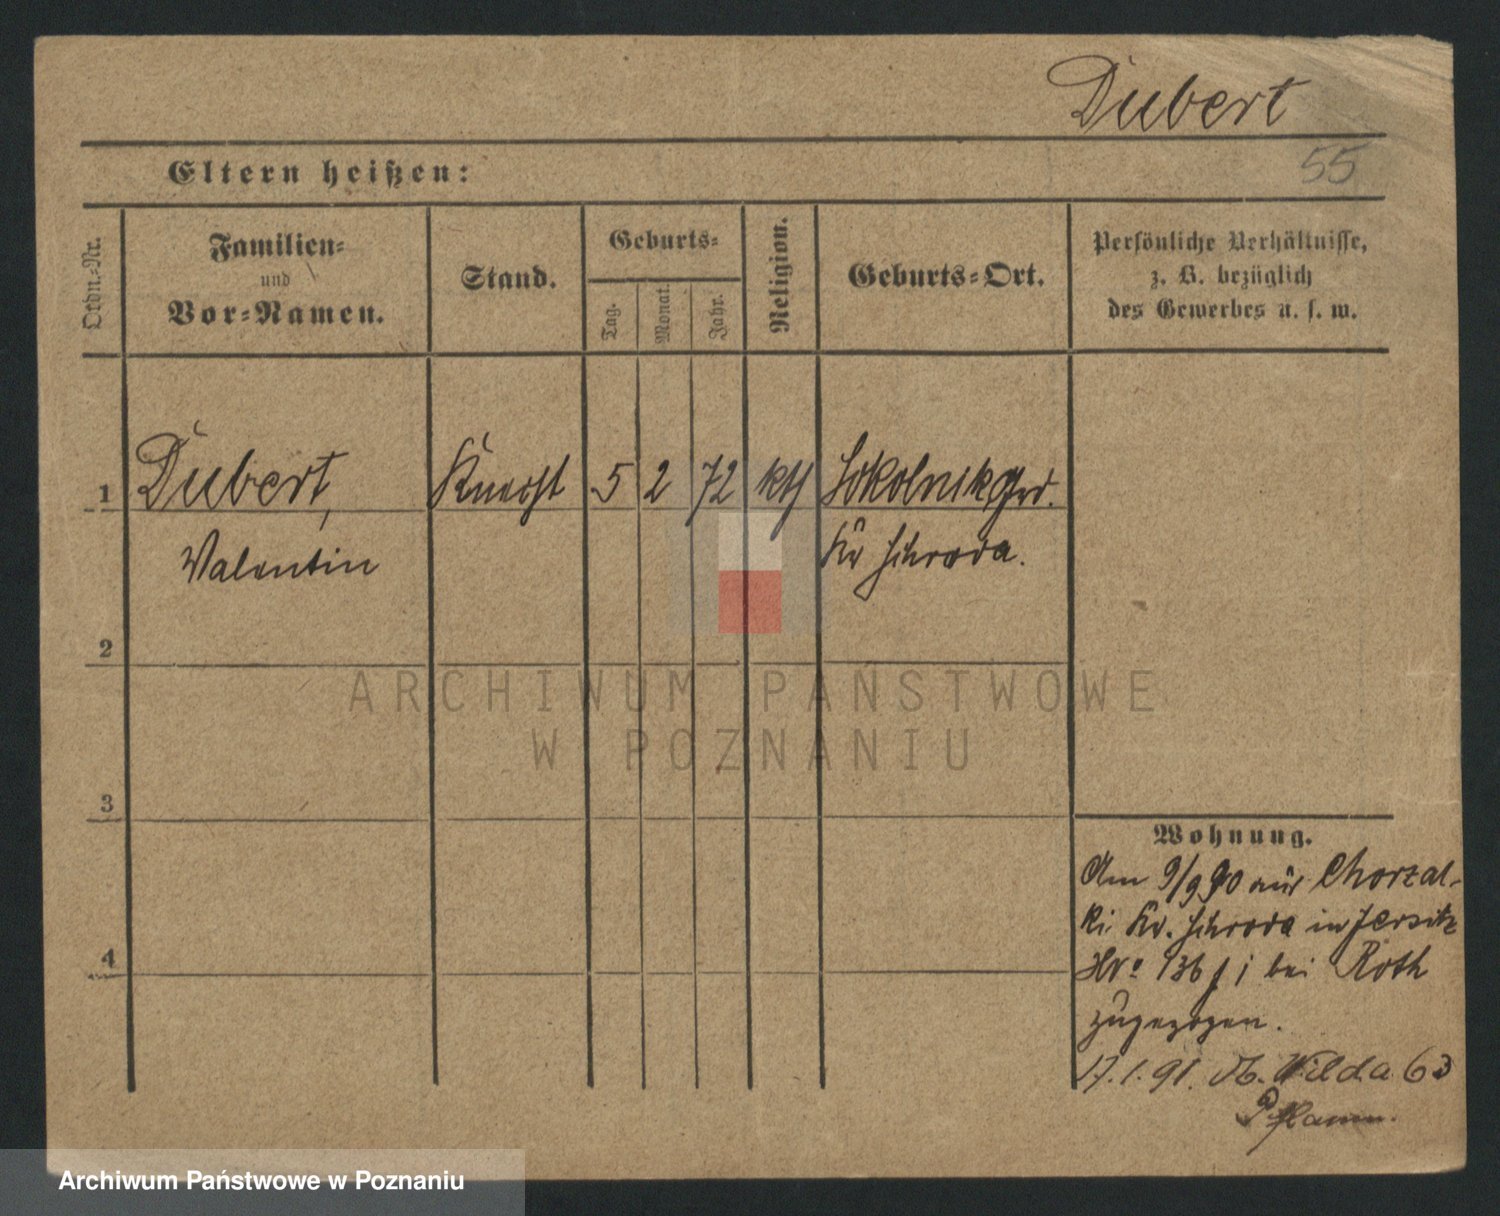 Dubert
55
Eltern heißen:
Ordn.-Nr.
Familien-
und
Vor-Namen.
Stand.
Geburts-
Tag.
Monat.
Jahr.
Religion.
Geburts-Ort.
Persönliche Verhältnisse,
z. B. bezüglich
des Gewerbes u. s. w.
1
Dubert,
Knecht
5
2
72
kth
Sokolnik Grd.
Valentin
Kr Schroda.
2
3
4
ARCHIWUM PAŃSTWOWE
W POZNANIU
Wohnung.
Am 9/9 90 aus Chorzal-
ki Kr. Schroda in Jersitz
No 136 bei Roth
zugezogen.
17.1.91. Wilda 63
Archiwum Państwowe w Poznaniu